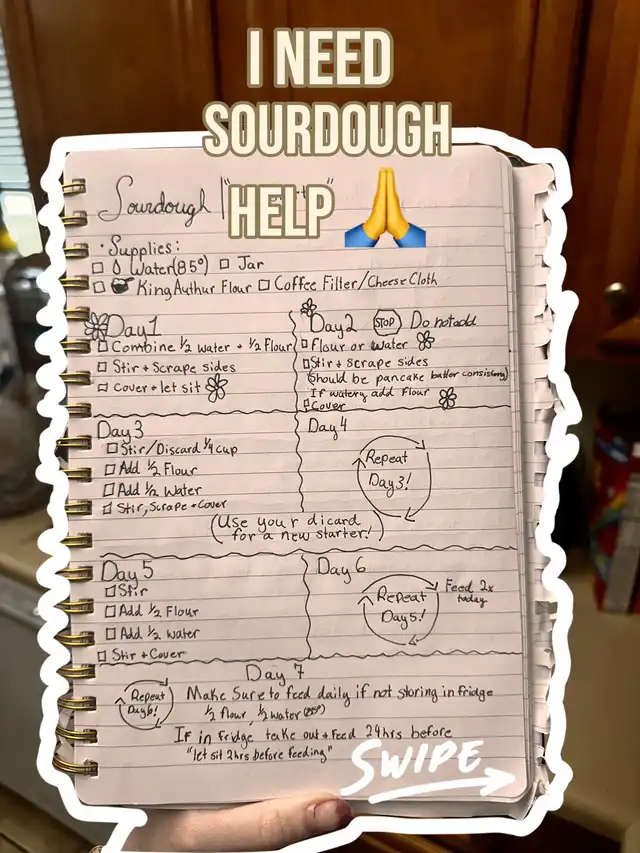 I NEED
SOURDOUGH
HELP 🙏
Sourdough
• Supplies:
□ Water (85°) □ Jar
□ King Authur Flour □ Coffee Filter/Cheese Cloth
Day 1
□ Combine 1/2 water + 1/2 Flour
□ Stir + Scrape sides
□ Cover + let sit
Day 2 STOP Do not add
□ Flour or Water
□ Stir + scrape sides
(should be pancake batter consistency)
If watery add flour
□ Cover
Day 3
□ Stir/Discard 1/4 cup
□ Add 1/2 Flour
□ Add 1/2 Water
□ Stir, Scrape + Cover
Day 4
Repeat
Day 3!
(Use your dicard
for a new starter!)
Day 5
□ Stir
□ Add 1/2 Flour
□ Add 1/2 Water
□ Stir + Cover
Day 6
Repeat
Day 5!
Feed 2x
today
Day 7
Repeat
Day 6!
Make Sure to feed daily if not storing in fridge
1/2 flour 1/2 water (85°)
If in Fridge take out + Feed 24hrs before
"let sit 2hrs before feeding"
SWIPE